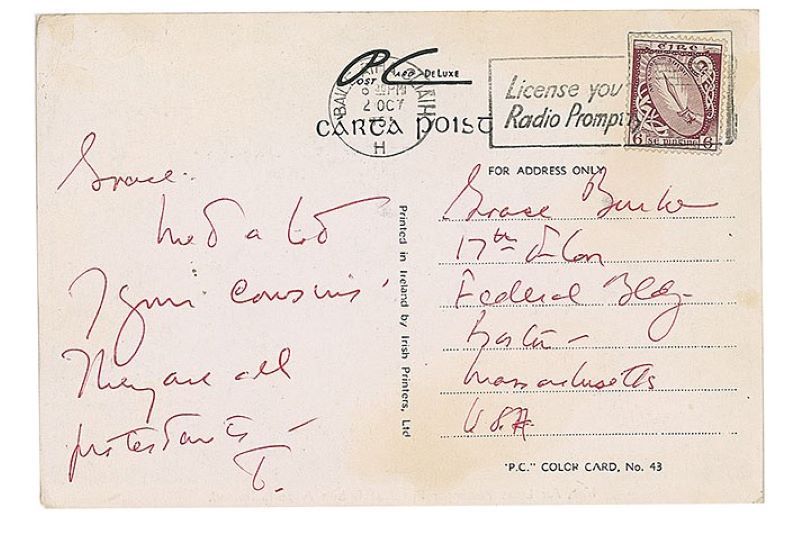 P.C.
POST CARD DE LUXE
CARTA POIST
BAILE ÁTHA CLIATH
PM
2 OCT
H
License you
Radio Promptly
EIRE
6 6
FOR ADDRESS ONLY
Grace.
Met a lot
of your cousins.
They are all
protestants –
T.
Printed in Ireland by Irish Printers, Ltd
Grace Burke
17th floor
Federal Bldg.
Boston –
Massachusetts
USA
"P.C." COLOR CARD, No. 43